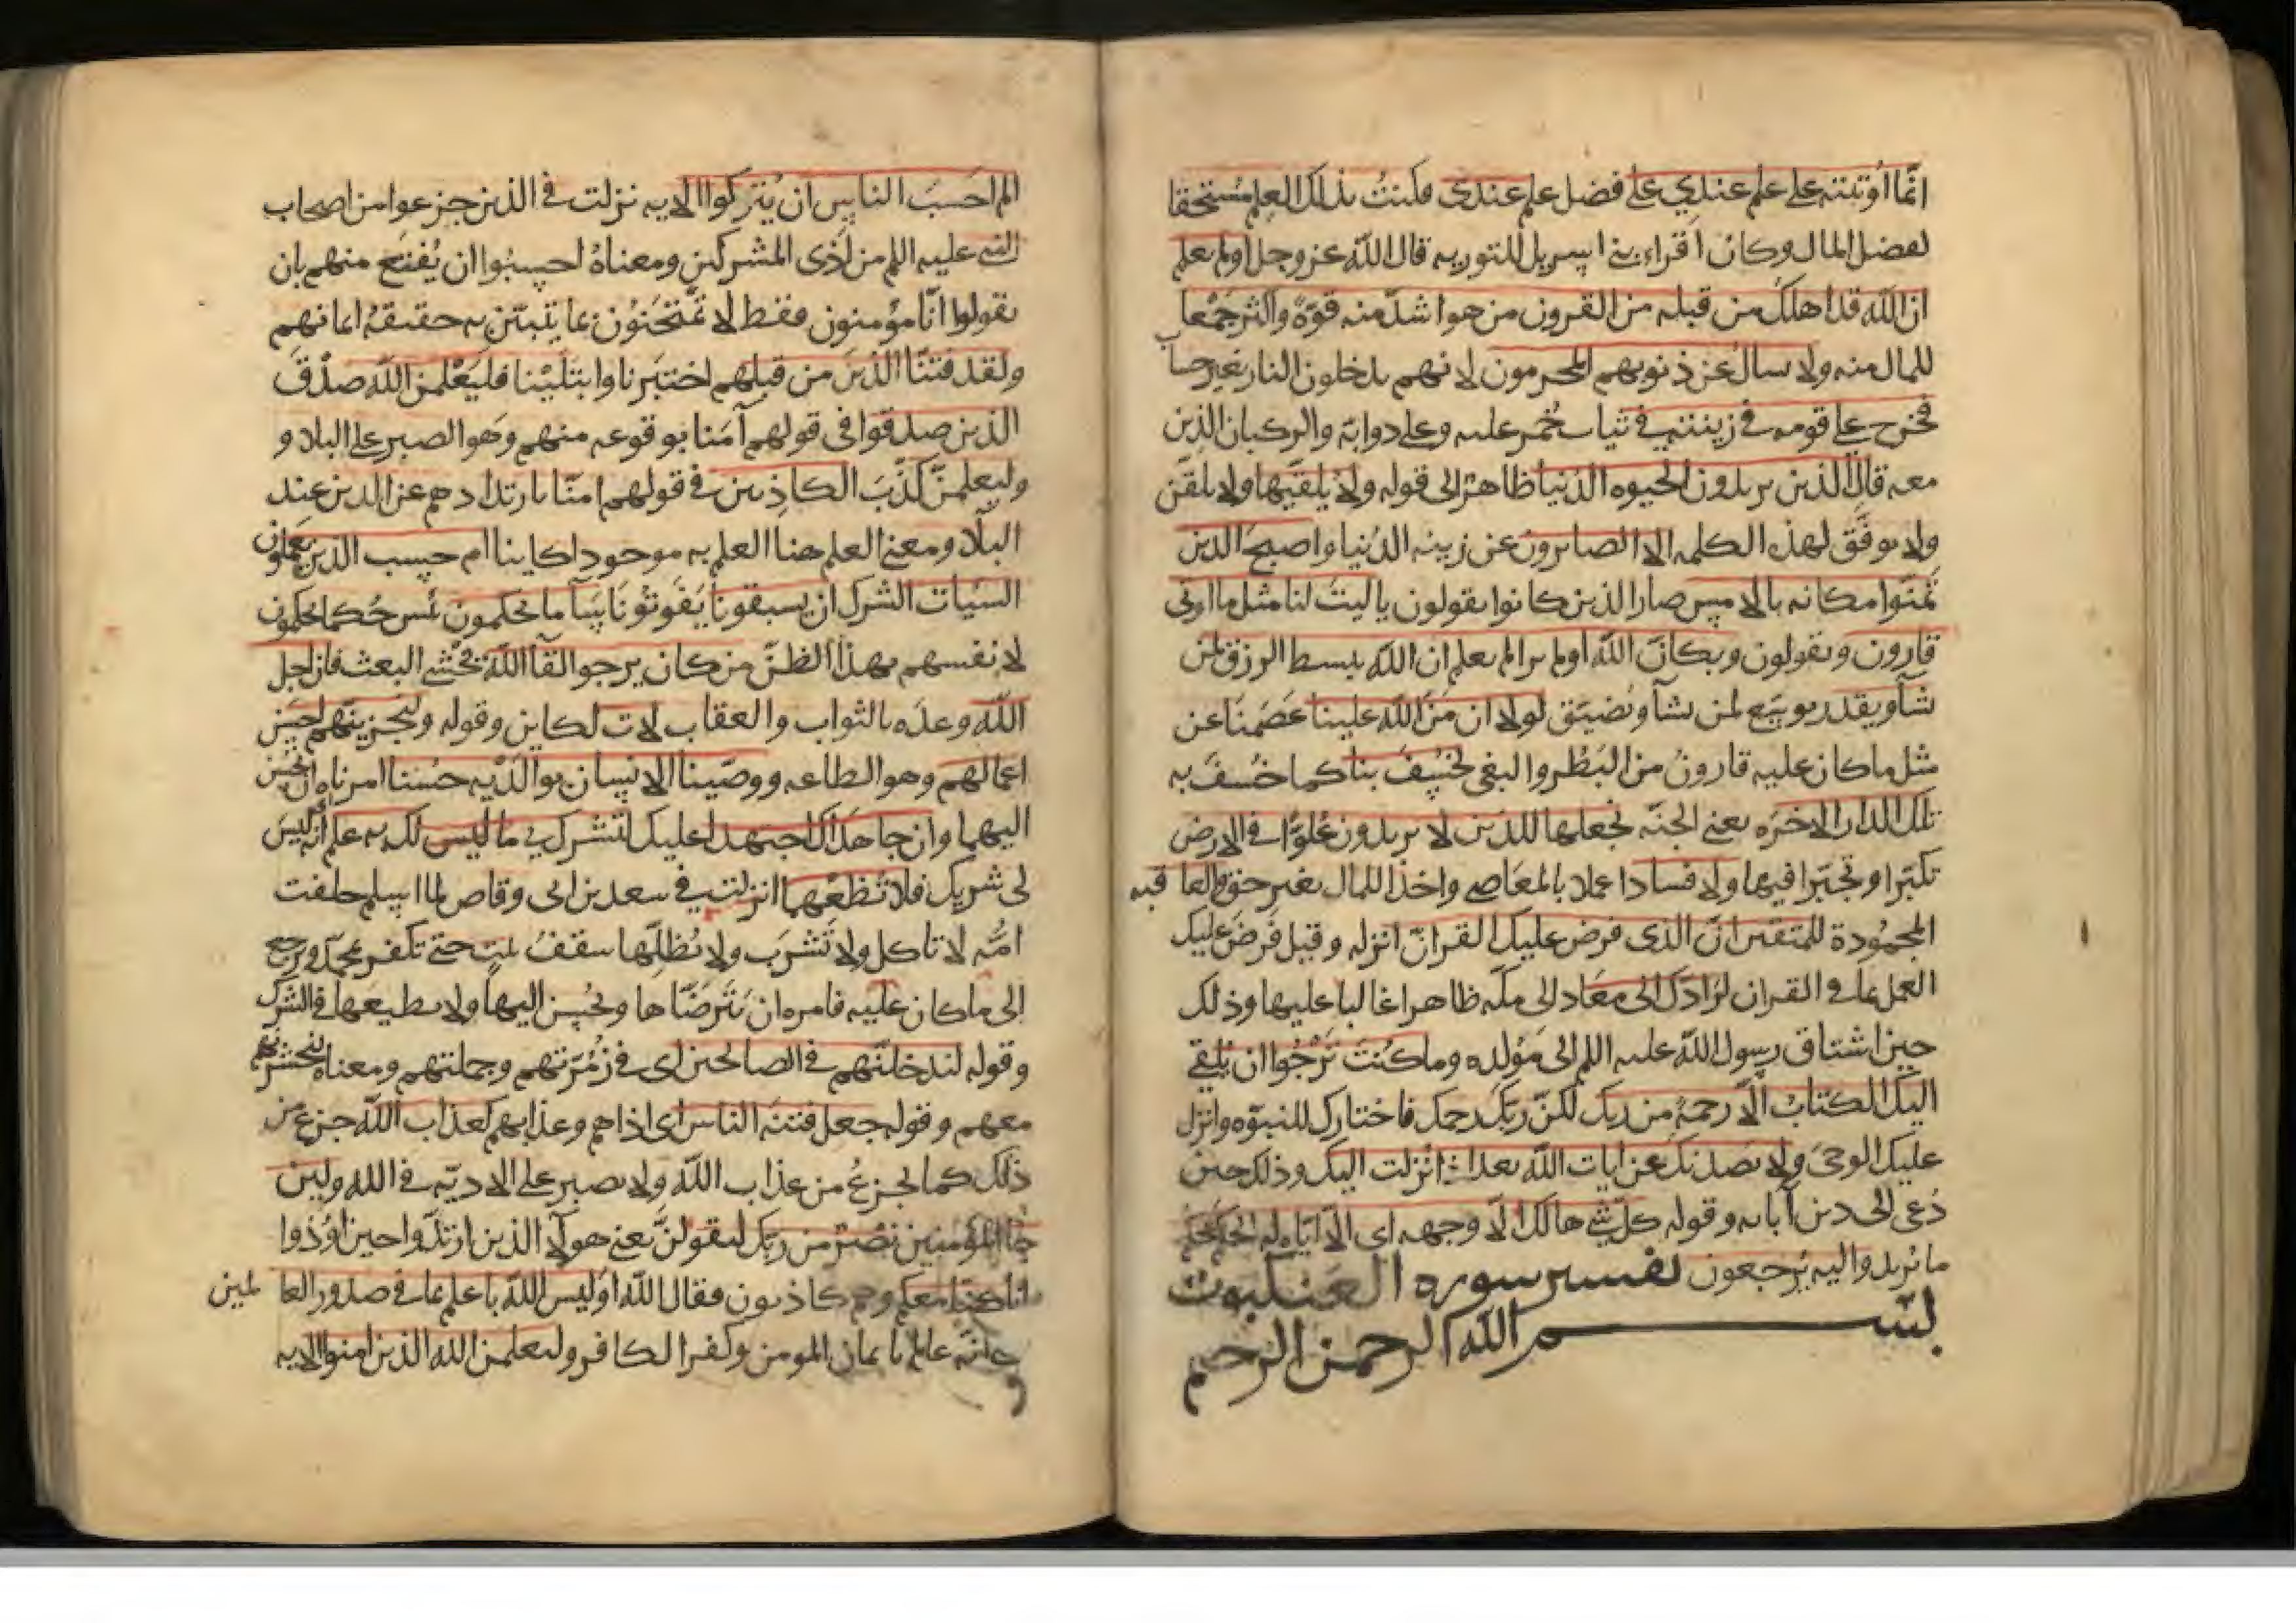 انما اوتيته على علم عندي على فضل علم عندى فكنت بذلك العلم مستحقا
لفضل المال وكان اقراء بنى اسريل للتوريه قال الله عز وجل اولم يعلم
ان الله قد اهلك من قبله من القرون من هو اشد منه قوة واكثر جمعا
للمال منه ولا يسال عن ذنوبهم المجرمون لانهم يدخلون النار بغير حساب
فخرج على قومه في زينته في ثياب حمر عليه وعلى دوابه والركبان الذين
معه قال الذين يريدون الحيوه الدنيا ظاهر الى قوله ولا يلقيها ولا يلقن
ولا يوفق لهذه الكلمه الا الصابرون عن زينه الدنيا واصبح الذين
تمنوا مكانه بالامس صار الذين كانوا يقولون ياليت لنا مثل ما اوتى
قارون ويقولون ويكان الله اولم ير الم يعلم ان الله يبسط الرزق لمن
يشآ ويقدر يوسع لمن يشآ ويضيق لولا ان من الله علينا عصمنا عن
مثل ماكان عليه قارون من البطر والبغى لخسف بنا كما خسف به
تلك الدار الاخره يعنى الجنه نجعلها للذين لا يريدون علوا في الارض
تكبرا وتجبرا فيها ولا فسادا عملا بالمعاصى واخذا للمال بغير حق والعاقبه
المحمودة للمتقين ان الذى فرض عليك القران انزله وقيل فرض عليك
العمل بما في القران لرادك الى معاد الى مكه ظاهرا غالبا عليها وذلك
حين اشتاق رسول الله عليه اللم الى مولده وما كنت ترجوا ان يلقى
اليك الكتاب الا رحمة من ربك لكن ربك رحمك فاختارك للنبوه وانزل
عليك الوحى ولا يصدنك عن ايات الله بعد اذ انزلت اليك وذلك حين
دعى الى دين آبايه وقوله كل شى هالك الا وجهه اى الا اياه له الحكم يحكم
ما يريد واليه يرجعون تفسير سوره العنكبوت
بسم الله الرحمن الرحيم
الم احسب الناس ان يتركوا الايه نزلت في الذين جزعوا من اصحاب
النبى عليه اللم من اذى المشركين ومعناه احسبوا ان يقنع منهم بان
يقولوا انا مؤمنون فقط لا يمتحنون بما يتبين به حقيقه ايمانهم
ولقد فتنا الذين من قبلهم اختبرنا وابتلينا فليعلمن الله صدق
الذين صدقوا في قولهم آمنا بوقوعه منهم وهو الصبر على البلاء و
وليعلمن كذب الكاذبين في قولهم امنا بارتدادهم عن الدين عند
البلاء ومعنى العلم هنا العلم به موجودا كاينا ام حسب الذين يعملون
السيات الشرك ان يسبقونا يفوتونا سآ ما يحكمون بئس حكما يحكمون
لانفسهم بهذا الظن من كان يرجوا لقآ الله يخشى البعث فان اجل
الله وعده بالثواب والعقاب لات لكاين وقوله ولنجزينهم احسن
اعمالهم وهو الطاعه ووصينا الانسان بوالديه حسنا امرناه ان يحسن
اليهما وان جاهداك اجتهدا عليك لتشرك بي ما ليس لك به علم انه ليس
لى شريك فلا تطعهما انزلت في سعد بن ابى وقاص لما اسلم حلفت
امه لا تاكل ولا تشرب ولا يظلها سقف بيت حتى تكفر بمحمد وترجع
الى ماكان عليه فامره ان يترضاها ويحسن اليها ولا يطيعها في الشرك
وقوله لندخلنهم في الصالحين اى في زمرتهم وجملتهم ومعناه لنحشرنهم
معهم وقوله جعل فتنه الناس اى اذاهم وعذابهم كعذاب الله جزع من
ذلك كما يجزع من عذاب الله ولا يصبر على الاديه في الله ولين
جا المؤمنين نصر من ربك ليقولن يعنى هولآ الذين ارتدوا حين اوذوا
انا كنا معكم وهم كاذبون فقال الله اوليس الله باعلم بما في صدور العالمين
انه عالم بايمان المومن وكفر الكافر وليعلمن الله الذين امنوا الايه